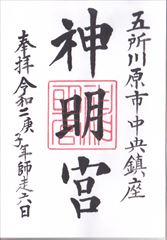 五所川原市中央鎮座
神明宮
奉拝 令和二庚子年師走六日